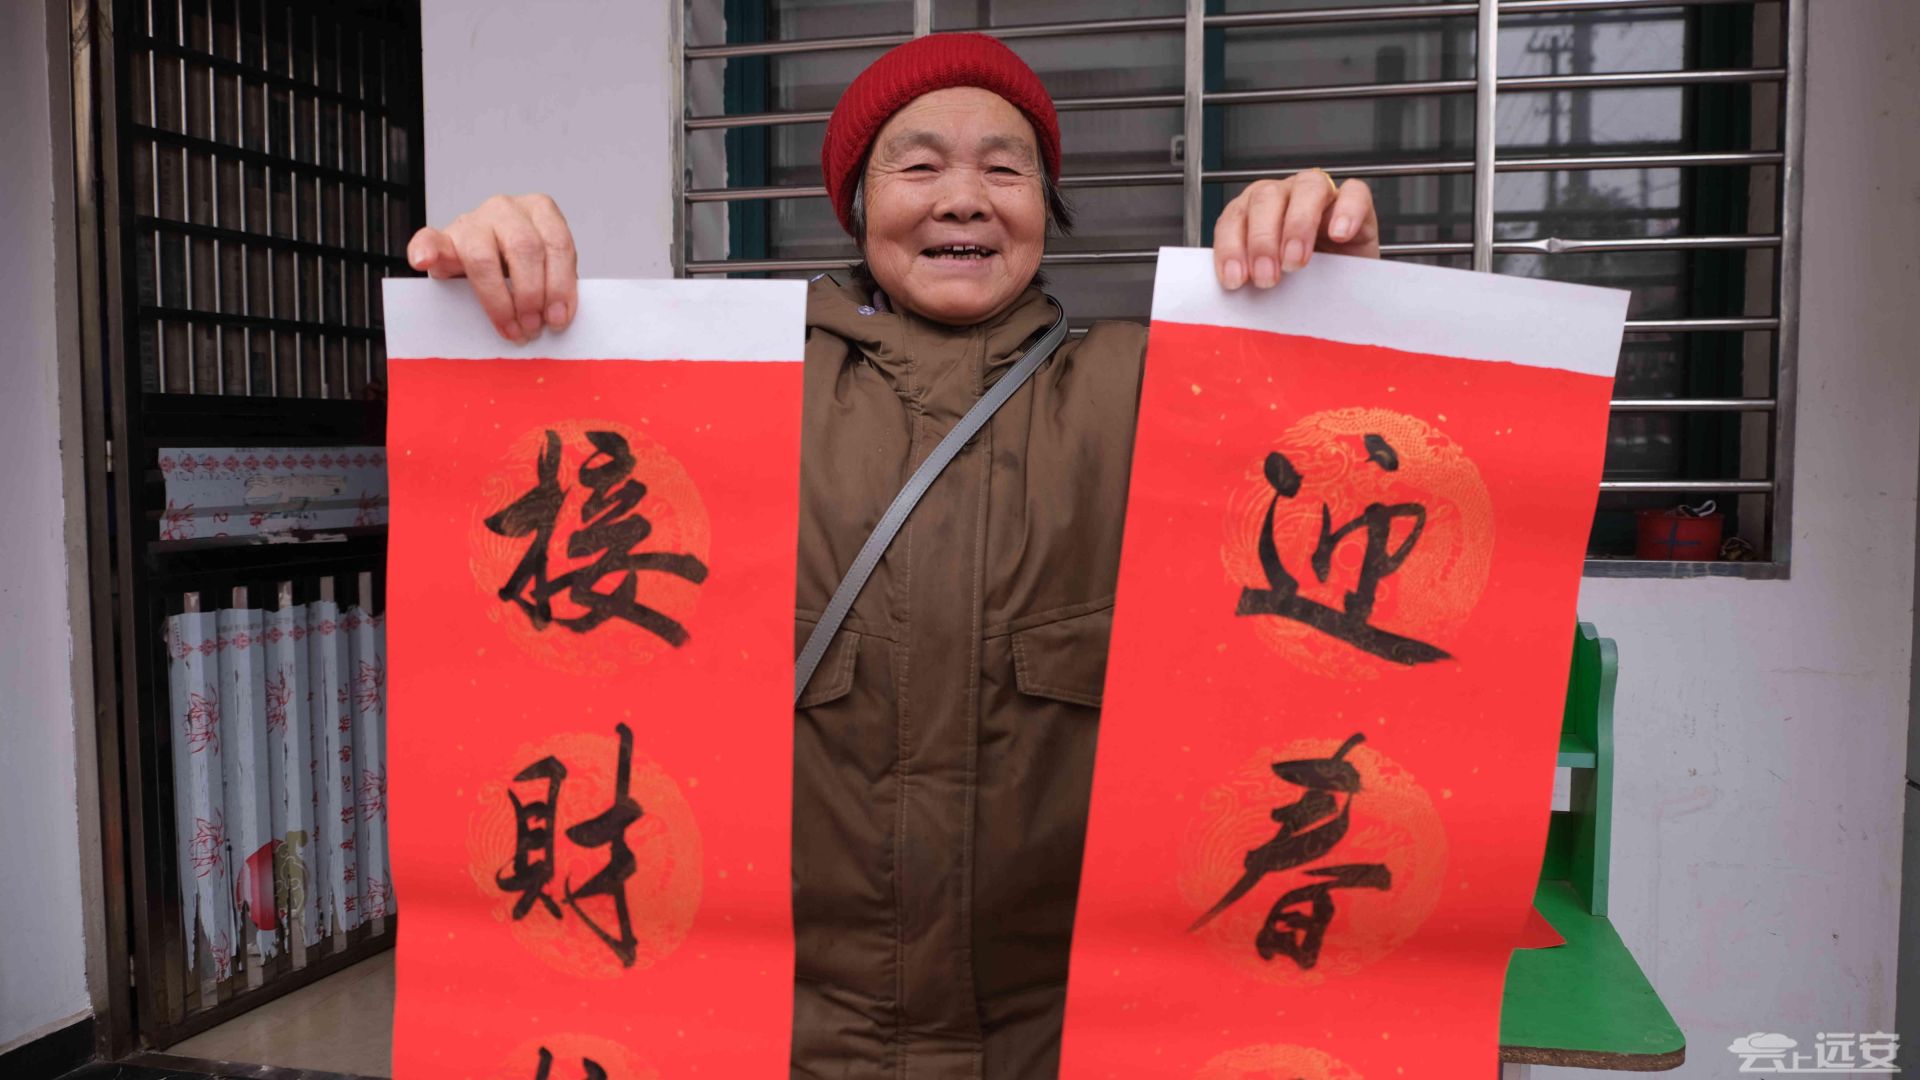 迎春
接財
云上远安